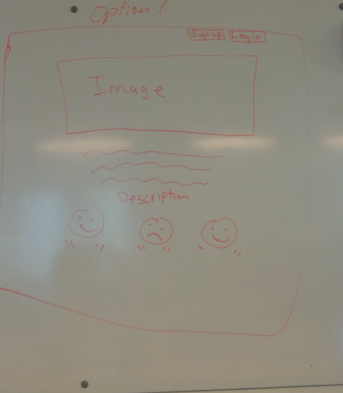 Option 1
Signup Login
Image
Description